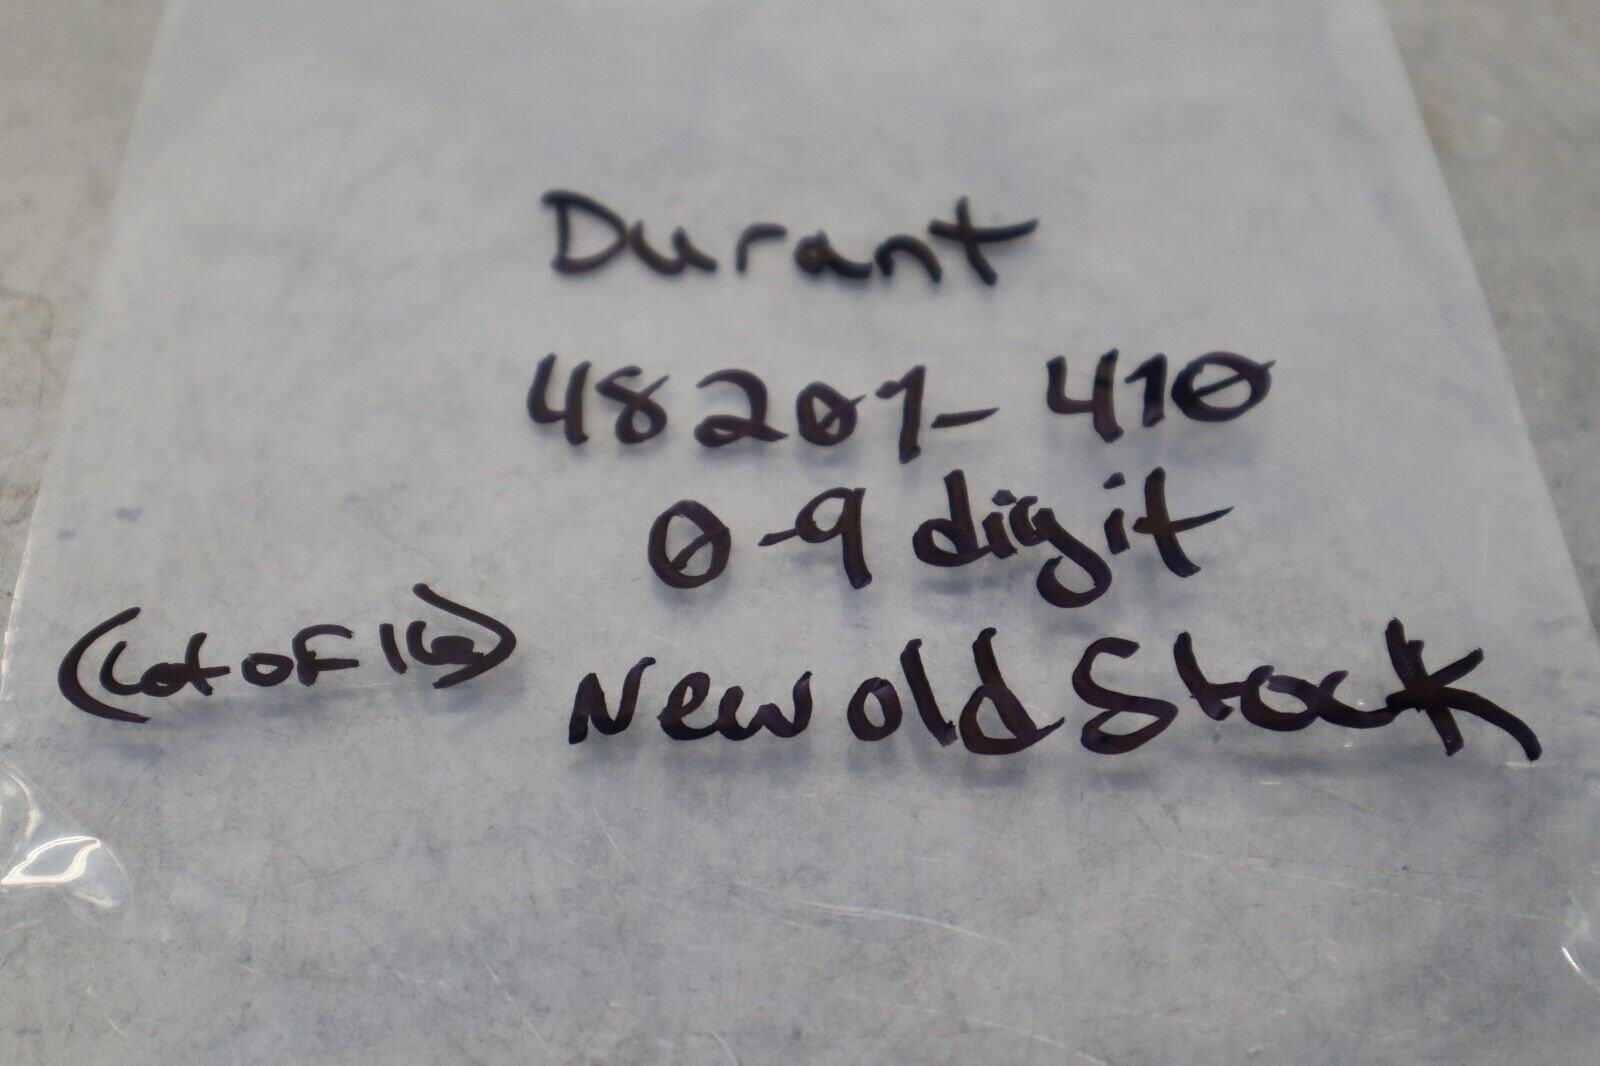 Durant
48201-410
0-9 digit
(Lot OF 16)
New old Stock